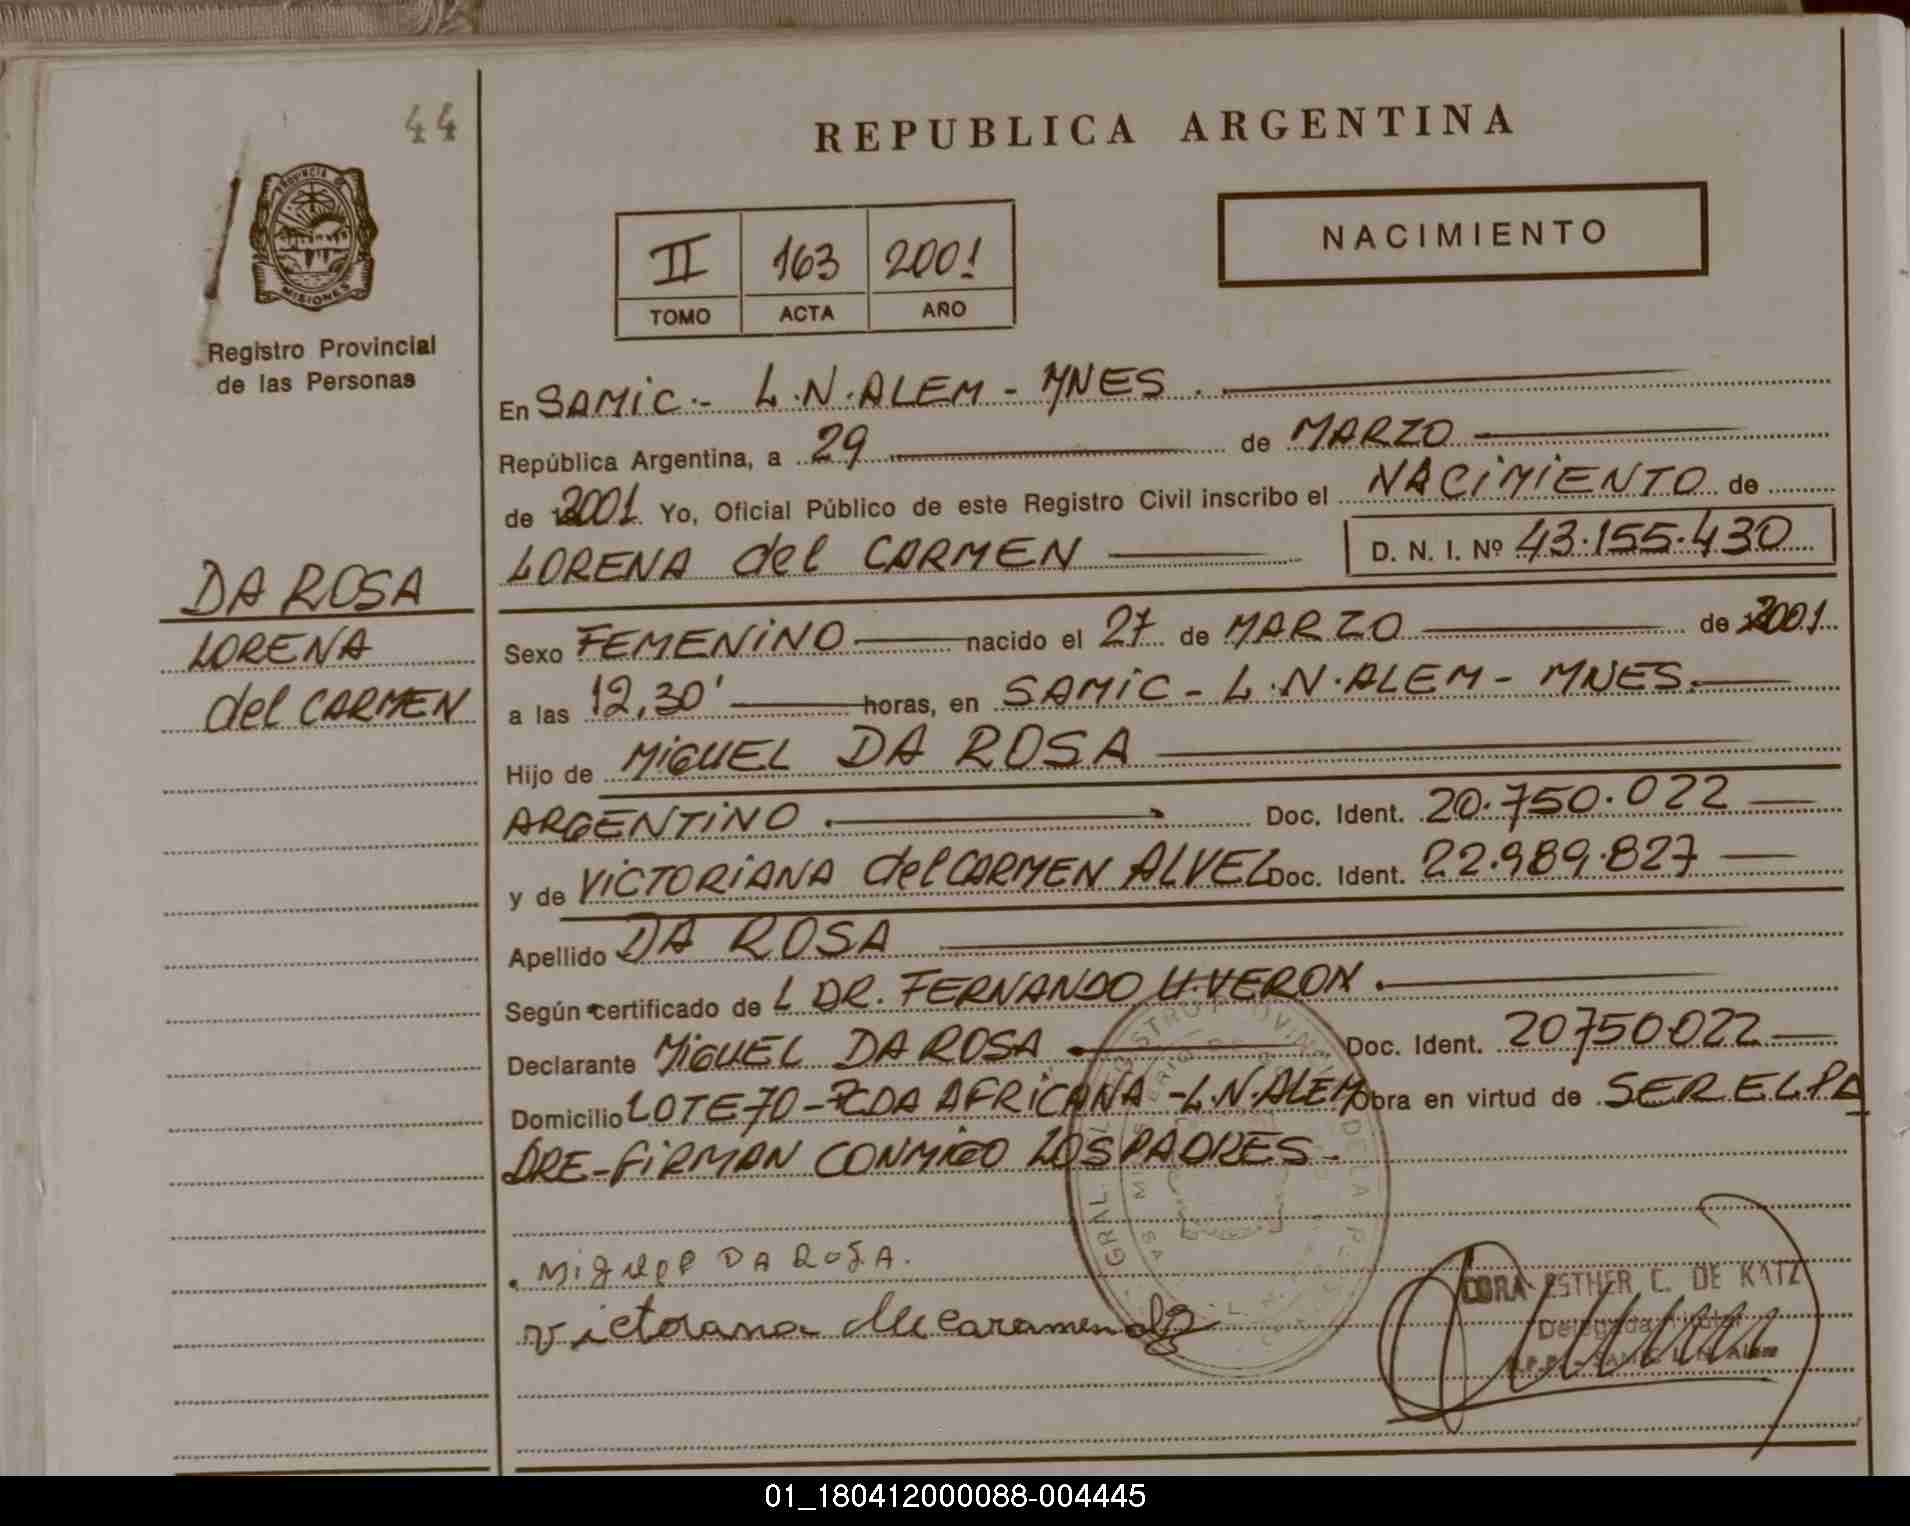 44
PROVINCIA DE
MISIONES
Registro Provincial
de las Personas
DA ROSA
LORENA
del CARMEN
REPUBLICA ARGENTINA
II 163 2001
TOMO ACTA AÑO
NACIMIENTO
En SAMIC.- L.N.ALEM - MNES.
República Argentina, a 29 de MARZO
de 2001 Yo, Oficial Público de este Registro Civil inscribo el NACIMIENTO de
LORENA del CARMEN D. N. I. Nº 43.155.430
Sexo FEMENINO nacido el 27 de MARZO de 2001
a las 12,30' horas, en SAMIC - L.N.ALEM - MNES.
Hijo de MIGUEL DA ROSA
ARGENTINO Doc. Ident. 20.750.022
y de VICTORIANA del CARMEN ALVEZ Doc. Ident. 22.989.827
Apellido DA ROSA
Según certificado de L DR. FERNANDO H. VERON.
Declarante MIGUEL DA ROSA Doc. Ident. 20750022
Domicilio LOTE 70 - PCDA AFRICANA - L.N.ALEM Obra en virtud de SER EL PA
DRE - FIRMAN CONMIGO LOS PADRES.
MIGUEL DA ROSA.
DORA ESTHER C. DE KATZ
Delegada Titular
R.P.P. - SAMIC L.N. Alem
01_180412000088-004445